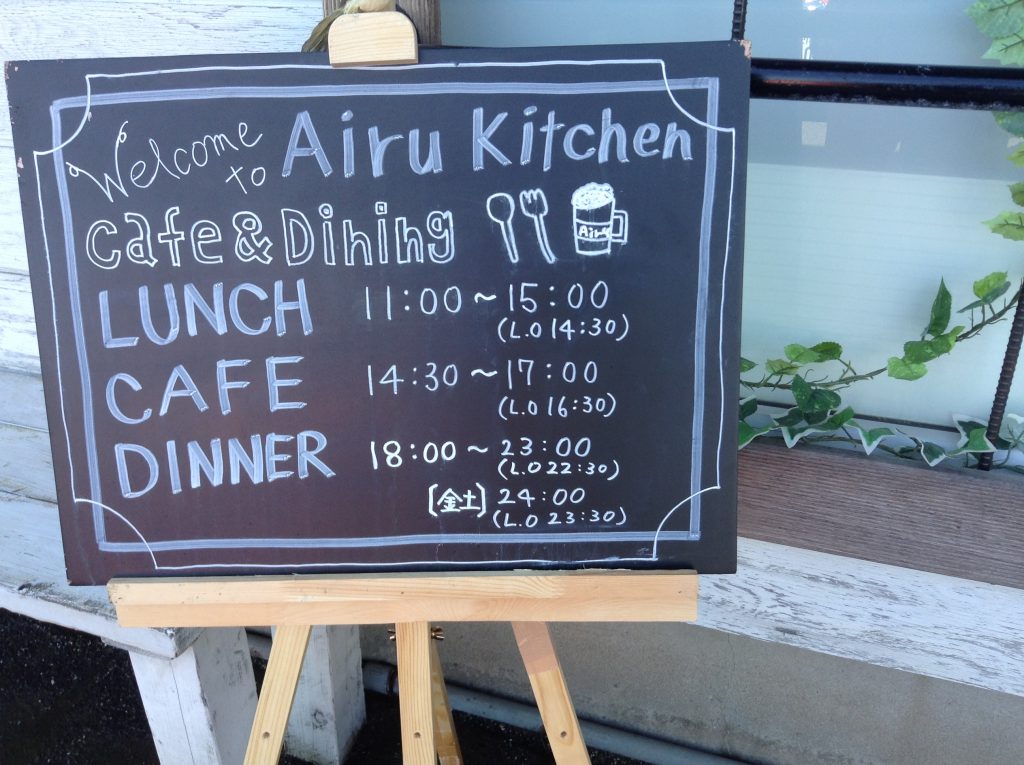 Welcome to Airu Kitchen
Cafe & Dining
Airu
LUNCH 11:00～15:00
(L.O 14:30)
CAFE 14:30～17:00
(L.O 16:30)
DINNER 18:00～23:00
(L.O 22:30)
[金土] 24:00
(L.O 23:30)